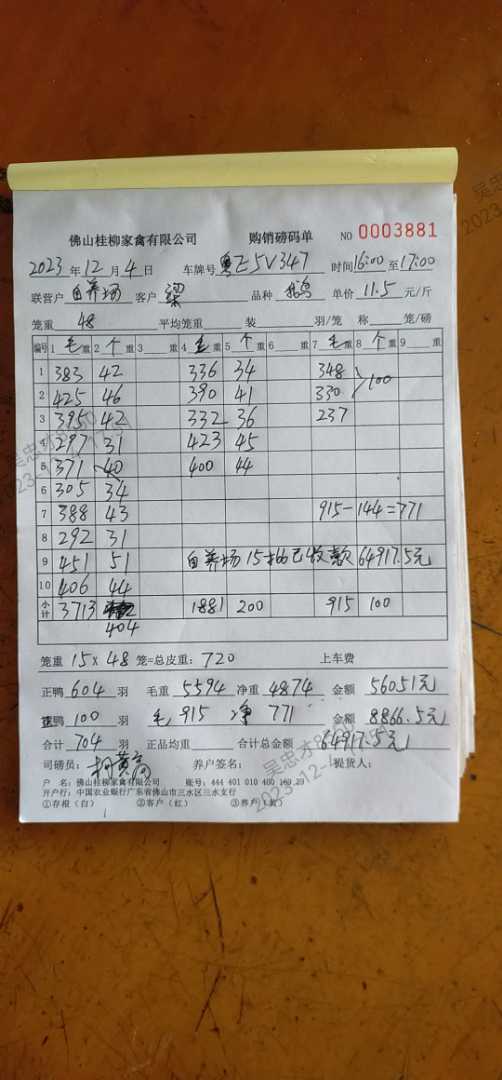 佛山桂柳家禽有限公司 购销磅码单 NO 0003881
2023年12月4日 车牌号 粤E5V347 时间16:00至17:00
联营户 自养场 客户 梁 品种 鹅 单价 11.5 元/斤
笼重 48 平均笼重 装 羽/笼 称 笼/磅
编号 1 毛重 2 个重 3 重 4 毛重 5 个重 6 重 7 毛重 8 个重 9 重
1 383 42 336 34 348
2 425 46 390 41 330 100
3 395 42 332 36 237
4 297 31 423 45
5 371 40 400 44
6 305 34
7 388 43 915-144=771
8 292 31
9 451 51 自养场15#已收款64917.5元
10 406 44
小计 3713 1881 200 915 100
404
笼重 15×48 笼=总皮重:720 上车费
正鸭 604 羽 毛重 5594 净重 4874 金额 56051元
鸭 100 羽 毛 915 净 771 金额 8866.5元
合计 704 羽 正品均重 合计总金额 64917.5元
司磅员: 养户签名: 提货人:
户 名:佛山桂柳家禽有限公司 账号:444 401 010 400 169 29
开户行:中国农业银行广东省佛山市三水区三水支行
①存根(白) ②客户(红) ③养户(黄)